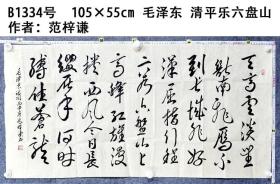 B1334号 105×55cm 毛泽东 清平乐六盘山
作者：范梓谦
天高雲淡望
断南飛雁不
到长城非好
漢屈指行程
二万六盘山上
高峰红旗漫
捲西风今日長
缨在手何时
缚住蒼龙